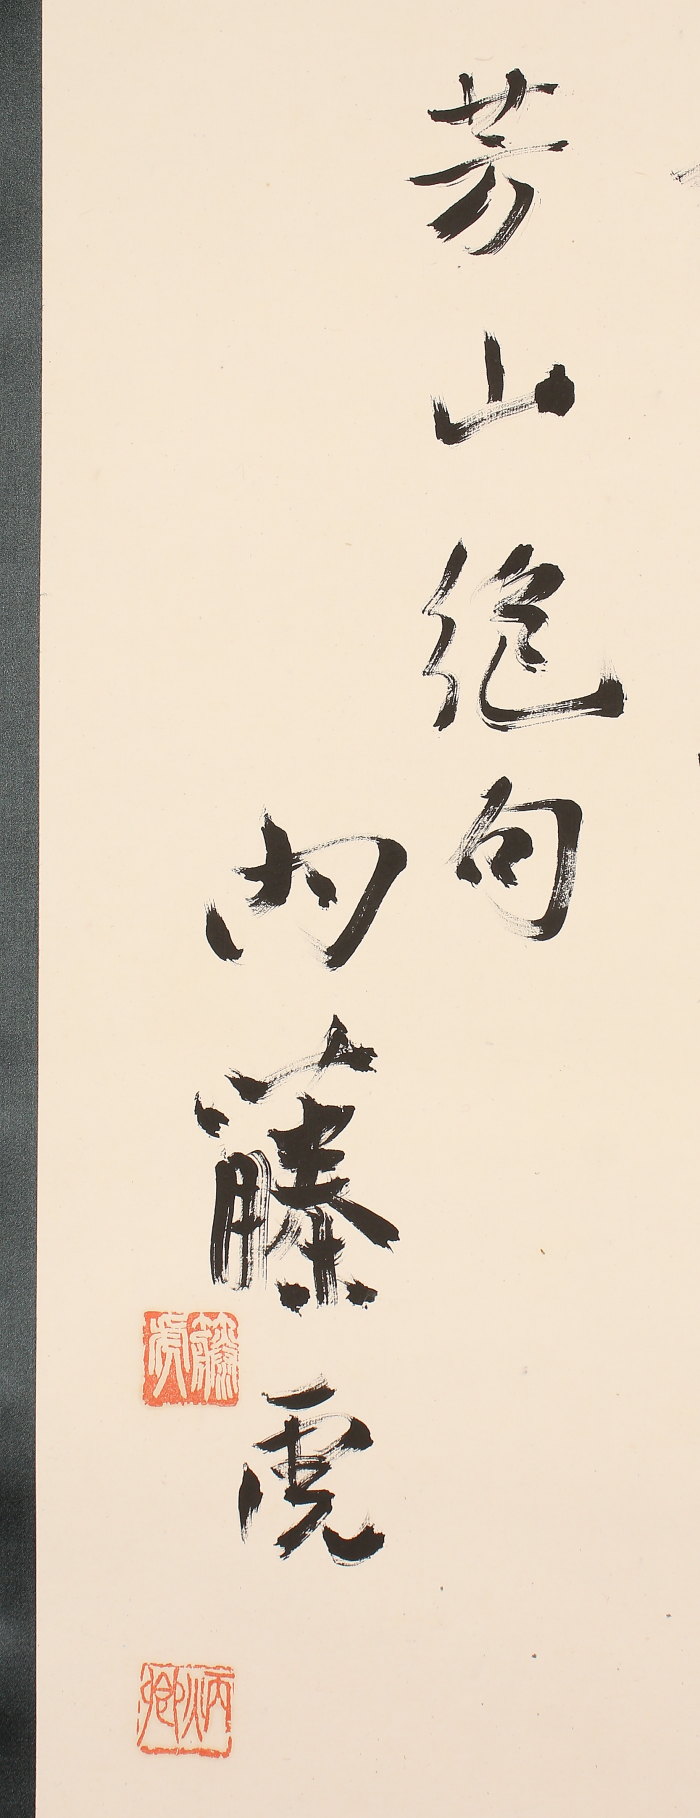 芳山絶句
内藤虎
藤虎
炳卿